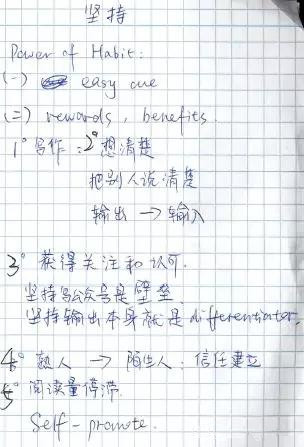 坚持
Power of Habit:
(一) easy cue
(二) rewards, benefits.
1° 写作: 2° 想清楚
把别人说清楚
输出 → 输入
3° 获得关注和认可.
坚持写公众号是壁垒.
坚持输出本身就是differentiator.
4° 熟人 → 陌生人: 信任建立
5° 阅读量停滞.
Self-promote.